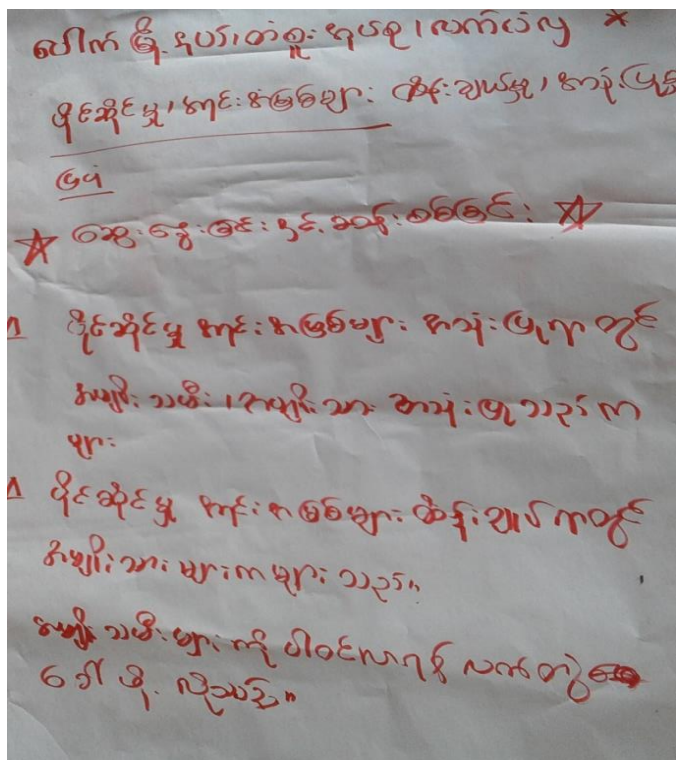 ပေါက်မြို့နယ်၊ တံငူးရွာ၊ လက်ပံလှ *
ပိုင်ဆိုင်မှု၊ အရင်းအမြစ်များ ထိန်းချုပ်မှု၊ အသုံးပြုမှု
ပြပုံ
☆ ဆွေးနွေးခြင်း နှင့် ဆန်းစစ်ခြင်း ☆
၁ ပိုင်ဆိုင်မှု အရင်းအမြစ်များ အသုံးပြုရာတွင်
အမျိုးသမီး၊ အမျိုးသား အသုံးပြုသည်က
များ
၁ ပိုင်ဆိုင်မှု အရင်းအမြစ်များ ထိန်းချုပ်ရာတွင်
အမျိုးသားများက များသည်။
အမျိုးသမီးများကို ပါဝင်လာရန် လက်တွဲ
ခေါ်ဖို့ လိုသည်။